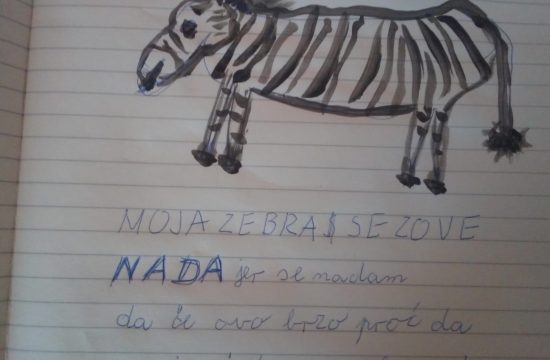 MOJA ZEBRA SE ZOVE
NADA jer se nadam
da će ovo brzo proć da